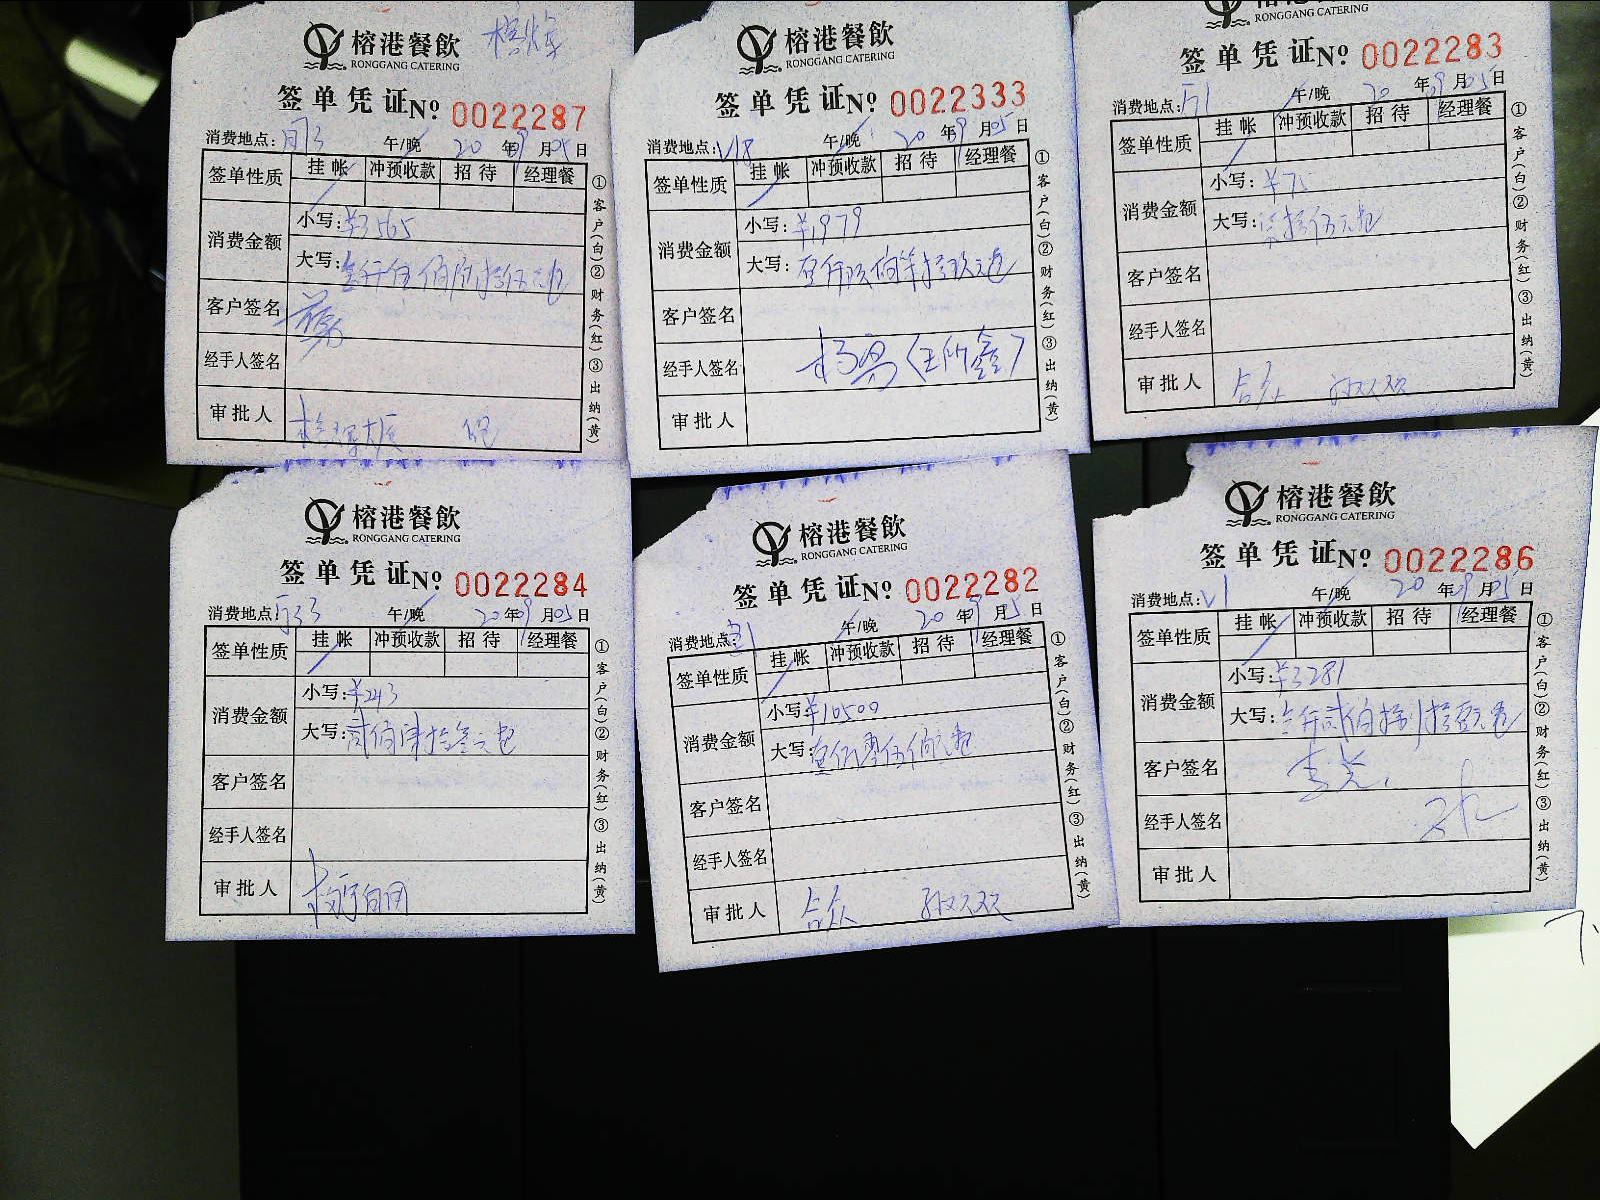 榕港餐飲
RONGGANG CATERING
签单凭证№ 0022287
消费地点: 午/晚 20 年9月05日
签单性质 挂帐 冲预收款 招待 经理餐
消费金额 小写:¥3565
大写:叁仟伍佰陆拾伍元
客户签名
经手人签名
审批人
①客户(白)②财务(红)③出纳(黄)
榕港餐飲
RONGGANG CATERING
签单凭证№ 0022333
消费地点:V18 午/晚 20 年9月05日
签单性质 挂帐 冲预收款 招待 经理餐
消费金额 小写:¥1979
大写:壹仟玖佰柒拾玖元
客户签名
经手人签名
审批人
①客户(白)②财务(红)③出纳(黄)
榕港餐飲
RONGGANG CATERING
签单凭证№ 0022283
消费地点: 午/晚 20 年9月5日
签单性质 挂帐 冲预收款 招待 经理餐
消费金额 小写:¥75
大写:柒拾伍元
客户签名
经手人签名
审批人 合众 孙双双
①客户(白)②财务(红)③出纳(黄)
榕港餐飲
RONGGANG CATERING
签单凭证№ 0022284
消费地点: 午/晚 20 年9月05日
签单性质 挂帐 冲预收款 招待 经理餐
消费金额 小写:¥243
大写:贰佰肆拾叁元
客户签名
经手人签名
审批人
①客户(白)②财务(红)③出纳(黄)
榕港餐飲
RONGGANG CATERING
签单凭证№ 0022282
消费地点: 午/晚 20 年9月5日
签单性质 挂帐 冲预收款 招待 经理餐
消费金额 小写:¥10500
大写:壹万零伍佰元
客户签名
经手人签名
审批人 合众 孙双双
①客户(白)②财务(红)③出纳(黄)
榕港餐飲
RONGGANG CATERING
签单凭证№ 0022286
消费地点:V1 午/晚 20 年9月05日
签单性质 挂帐 冲预收款 招待 经理餐
消费金额 小写:¥3281
大写:叁仟贰佰捌拾壹元
客户签名
经手人签名
审批人
①客户(白)②财务(红)③出纳(黄)